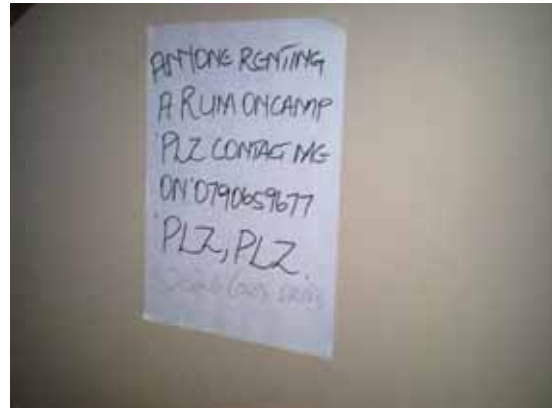 ANYONE RENTING
A RUM ONCAMP
'PLZ CONTACT ME
ON'0790659677
'PLZ, PLZ.